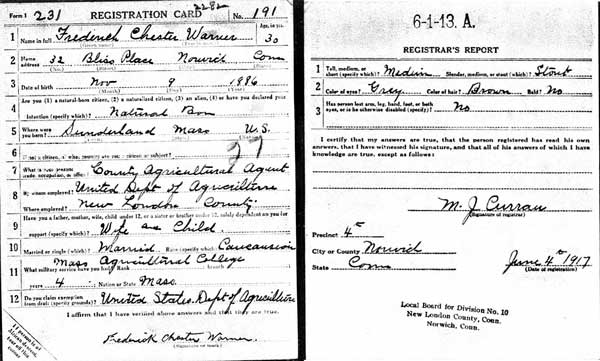 Form 1 231 REGISTRATION CARD 2282 No. 191
1 Name in full Frederick Chester Warner Age, in yrs. 30
2 Home address 32 Bliss Place Norwich Conn
3 Date of birth Nov 9 1886
4 Are you (1) a natural-born citizen, (2) a naturalized citizen, (3) an alien, (4) or have you declared your
intention (specify which)? Natural Born
5 Where were you born? Sunderland Mass U.S.
6 If not a citizen, of what country are you a citizen or subject?
27
7 What is your present trade, occupation, or office? County Agricultural Agent
8 By whom employed? United Dept of Agriculture
Where employed? New London County
9 Have you a father, mother, wife, child under 12, or a sister or brother under 12, solely dependent on you for
support (specify which)? Wife and Child
10 Married or single (which)? Married Race (specify which)? Caucausion
11 What military service have you had? Rank Mass Agricultural College branch
years 4 Nation or State Mass
12 Do you claim exemption from draft (specify grounds)? United States Dept of Agriculture
I affirm that I have verified above answers and that they are true.
Frederick Chester Warner
(Signature or mark)
6-1-13. A.
REGISTRAR'S REPORT
1 Tall, medium, or short (specify which)? Medium Slender, medium, or stout (which)? Stout
2 Color of eyes? Grey Color of hair? Brown Bald? No
3 Has person lost arm, leg, hand, foot, or both eyes, or is he otherwise disabled (specify)? No
I certify that my answers are true, that the person registered has read his own
answers, that I have witnessed his signature, and that all of his answers of which I have
knowledge are true, except as follows:
M. J. Curran
(Signature of registrar)
Precinct 4th
City or County Norwich
State Conn June 4th 1917
(Date of registration)
Local Board for Division No. 10
New London County, Conn.
Norwich, Conn.